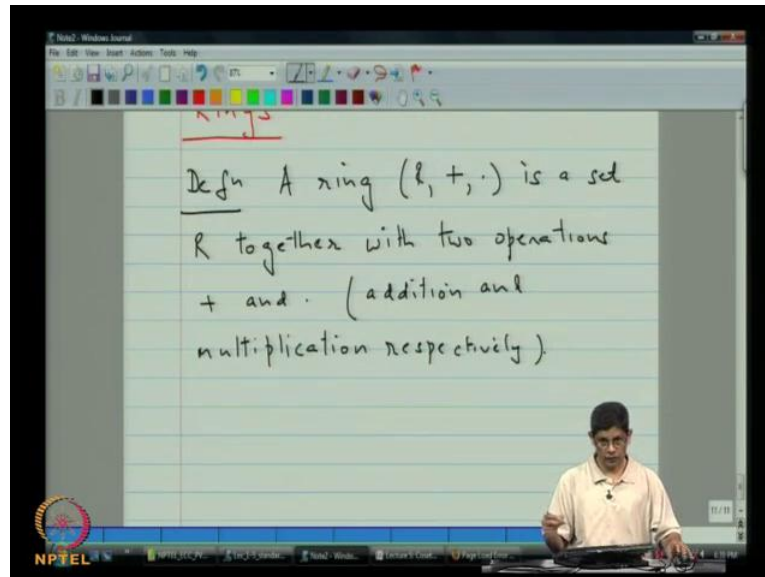 Note2 - Windows Journal
File Edit View Insert Actions Tools Help
Rings
Defn A ring (R, +, ·) is a set
R together with two operations
+ and · (addition and
multiplication respectively).
11 / 11
NPTEL
Note2 - Windo...
Page Load Error